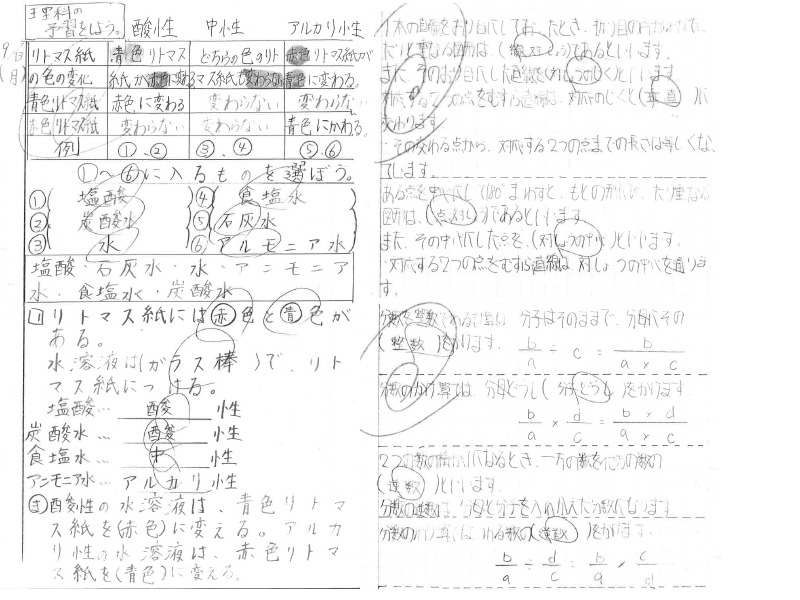 理科の
予習をしよう。
酸性 中性 アルカリ性
9/(月)
リトマス紙 青色リトマス どちらの色のリト 赤色リトマス紙が
の色の変化 紙が赤色に変る マス紙も変わらない 青色に変わる。
青色リトマス紙 赤色に変わる 変わらない 変わらない
赤色リトマス紙 変わらない 変わらない 青色にかわる。
例 ①、② ③、④ ⑤⑥
①〜⑥に入るものを選ぼう。
① 塩酸 ④ 食塩水
② 炭酸水 ⑤ 石灰水
③ 水 ⑥ アルモニア水
塩酸・石灰水・水・アンモニア
水・食塩水・炭酸水
1 リトマス紙には赤色と青色が
ある。
水溶液は(ガラス棒)で、リト
マス紙につける。
塩酸… 酸 性
炭酸水… 酸 性
食塩水… 中 性
アンモニア水… アルカリ 性
ま 酸性の水溶液は、青色リトマ
ス紙を(赤色)に変える。アルカ
リ性の水溶液は、赤色リトマ
ス紙を(青色)に変える。
1本の直線をおり目にしておったとき、折り目の
図形は、(線対しょう)であるといいます。
また、そのおり目にした直線を(対しょうのじく)といいます
対応する2つの点をむすぶ直線は、対称のじくと(垂直)に
交わります
その交わる点から、対応する2つの点までの長さは等しくな
ています。
ある点を中心にして180°まわすと、もとの
図形は、(点対しょう)であるといいます。
また、その中心にした点を、(対しょうの中心)といいます。
対応する2つの点をむすぶ直線は対しょうの中心を通りま
す。
分数を整数でわる計算は 分子はそのままで、分母にその
(整数)をかけます。 b/a ÷ c = b/(a×c)
分数のかけ算では 分母どうし(分子どうし)をかけます
b/a × d/c = (b×d)/(a×c)
2つの数の積が1になるとき、一方の数を他方の数の
(逆数)といいます
分数の逆数は、分母と分子を入れかえた分数になります
分数のわり算では わる数の(逆数)をかけます。
b/a ÷ d/c = b/a × c/d